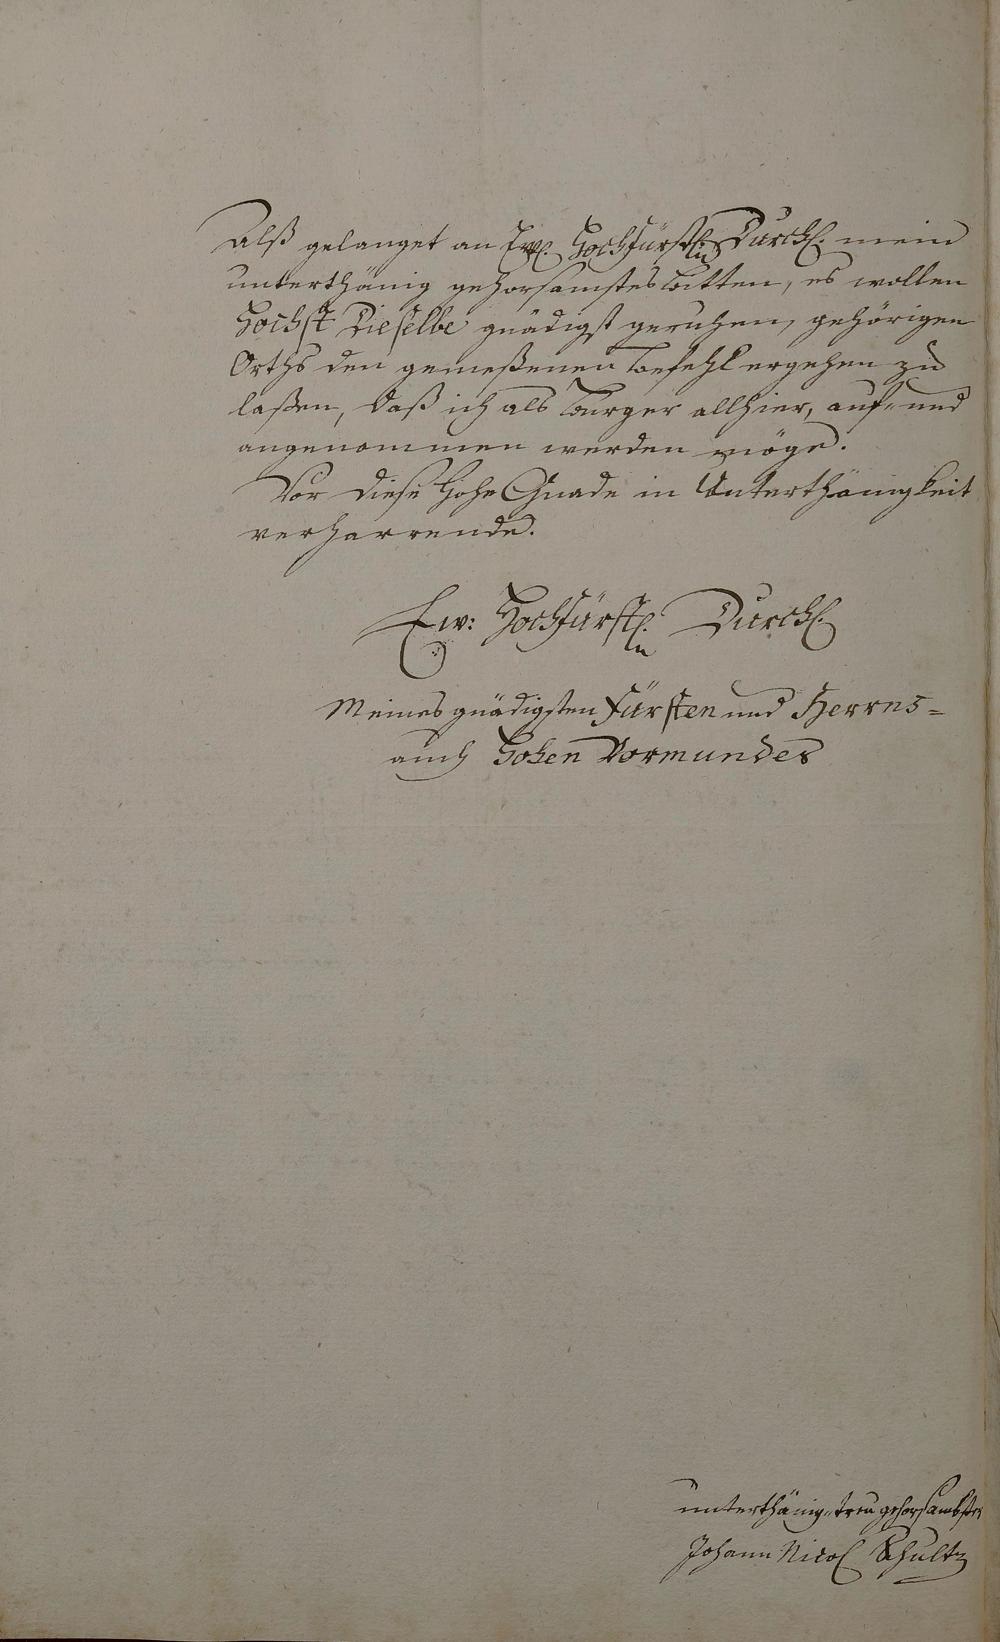 Alß gelanget an Ew. Hochfürstl. Durchl. mein
unterthänig gehorsamstes Bitten, es wollen
Hochst Dieselbe gnädigst geruhen, gehörigen
Orths den gemeßenen Befehl ergehen zu
laßen, daß ich als Burger allhier, auf- und
angenommen werden möge.
Vor diese hohe Gnade in Unterthänigkeit
verharrende.
Ew: Hochfürstl. Durchl.
Meines gnädigsten Fürsten und Herrns-
auch hohen Vormundes
unterthänig-treu gehorsambster
Johann Nicol Schultz